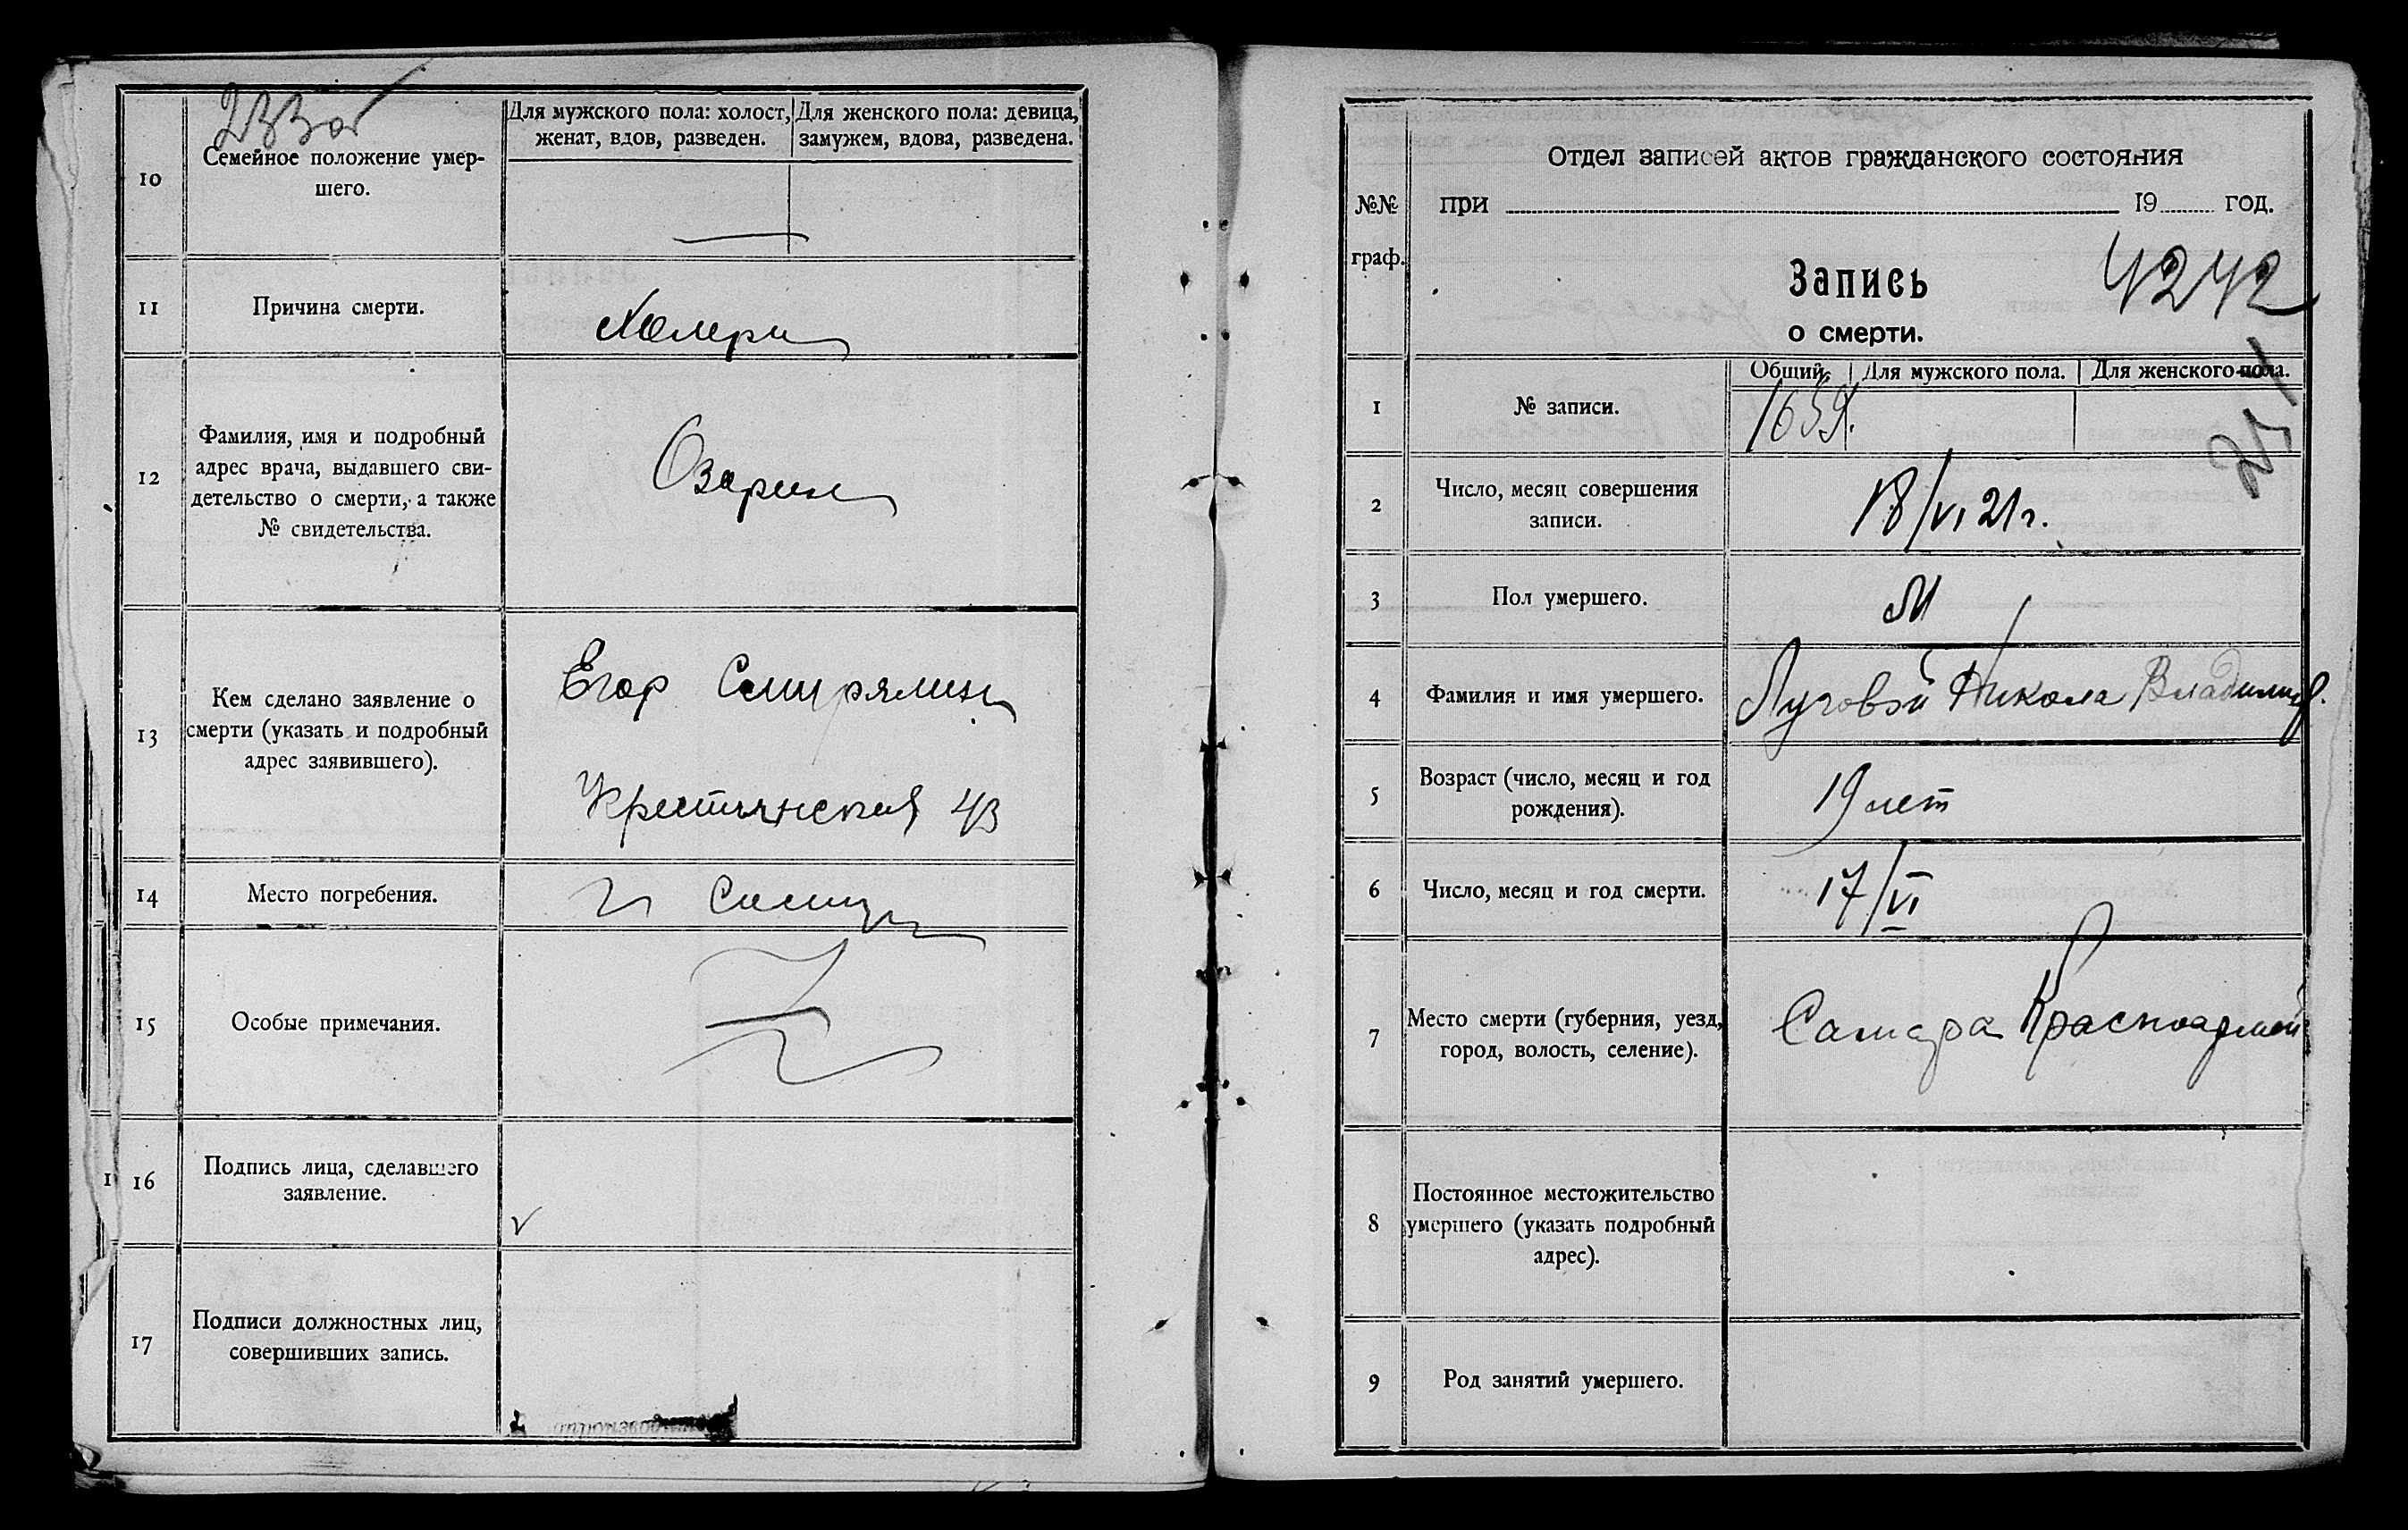 10
Семейное положение умер-
шего.
Для мужского пола: холост,
женат, вдов, разведен.
Для женского пола: девица,
замужем, вдова, разведена.
11
Причина смерти.
Холера
12
Фамилия, имя и подробный
адрес врача, выдавшего сви-
детельство о смерти, а также
№ свидетельства.
13
Кем сделано заявление о
смерти (указать и подробный
адрес заявившего).
Егор
Крестьянская 43
14
Место погребения.
15
Особые примечания.
16
Подпись лица, сделавшего
заявление.
17
Подписи должностных лиц,
совершивших запись.
№№
граф.
Отдел записей актов гражданского состояния
при 19 год.
Запись
4242
о смерти.
Общий.
Для мужского пола.
Для женского пола.
1
№ записи.
1659.
2
Число, месяц совершения
записи.
18/VI 21 г.
3
Пол умершего.
М
4
Фамилия и имя умершего.
Луговой Никола Владимир.
5
Возраст (число, месяц и год
рождения).
19 лет
6
Число, месяц и год смерти.
17/VI
7
Место смерти (губерния, уезд,
город, волость, селение).
Самара Красноармей
8
Постоянное местожительство
умершего (указать подробный
адрес).
9
Род занятий умершего.